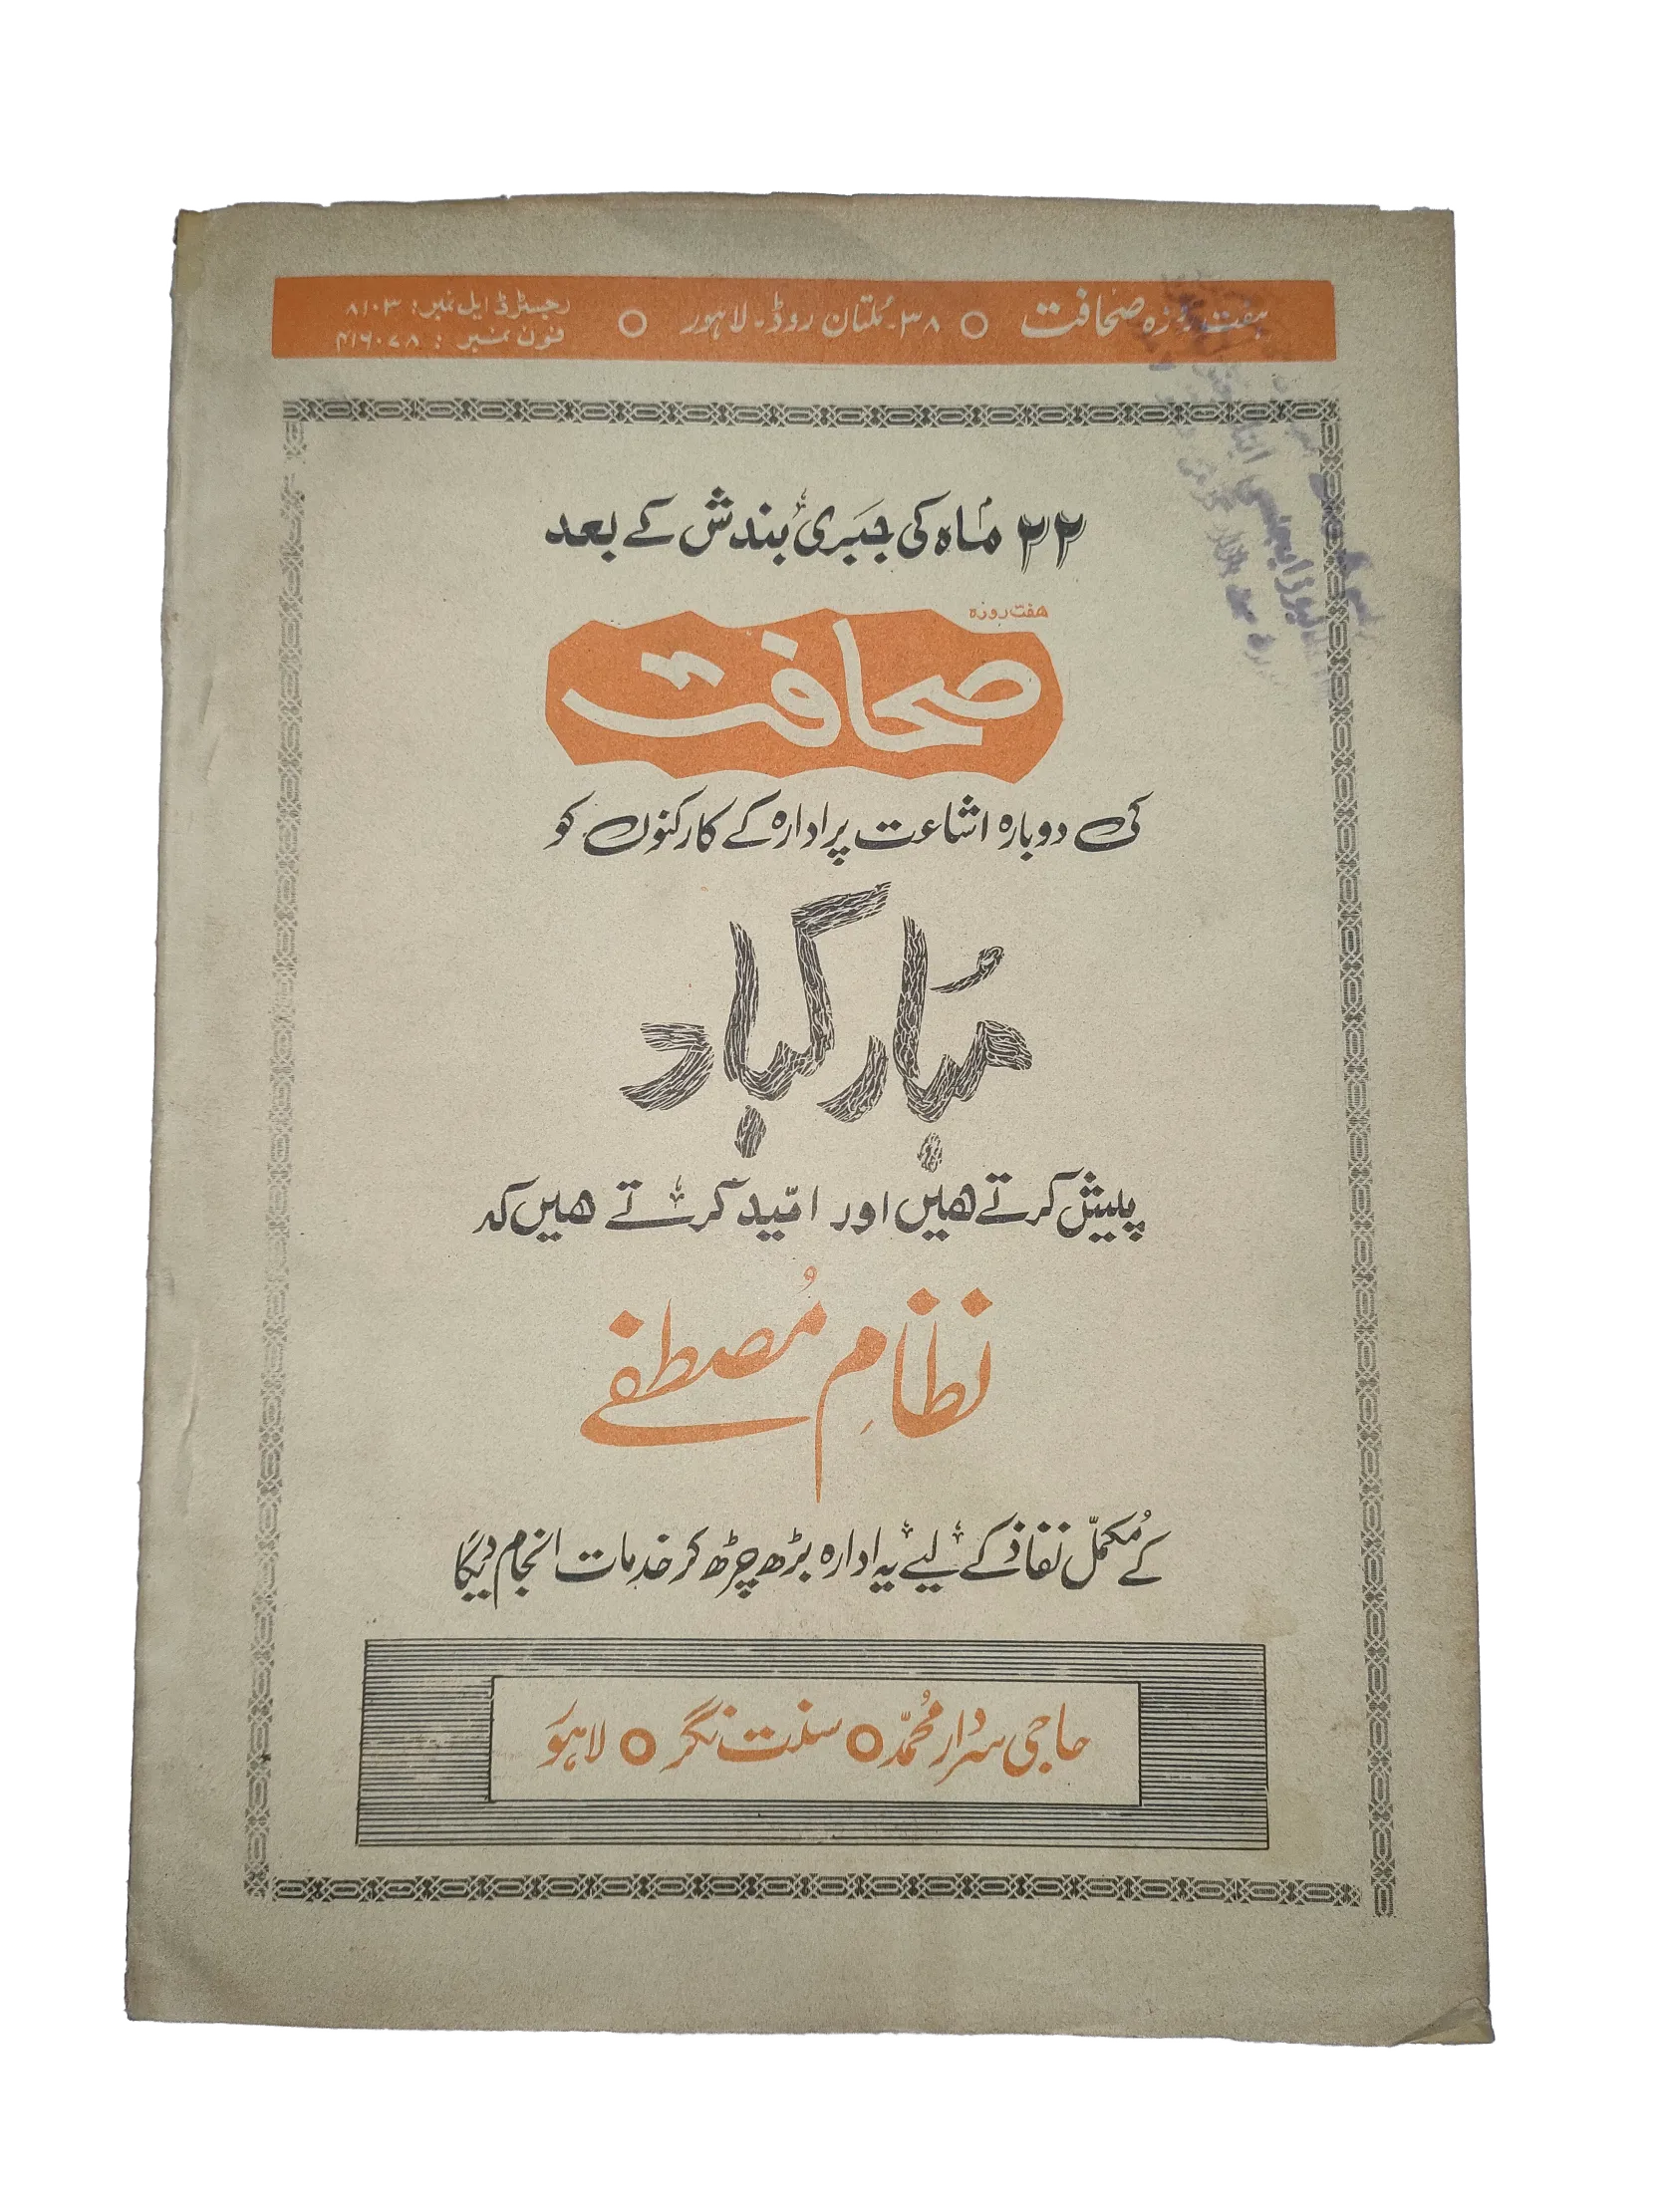 ہفت روزہ صحافت ○ ۳۸۔ ملتان روڈ۔ لاہور ○ رجسٹرڈ ایل نمبر: ۸۱۰۳
فون نمبر:
۲۲ ماہ کی جبری بندش کے بعد
ھفت روزہ
صحافت
کی دوبارہ اشاعت پر ادارہ کے کارکنوں کو
مُبارکباد
پیش کرتے ھیں اور امّید کرتے ھیں کہ
نظامِ مُصطفےٰ
کے مُکمّل نفاذ کے لیے یہ ادارہ بڑھ چڑھ کر خدمات انجام دیگا
حاجی سردار محمّد ○ سنت نگر ○ لاہور